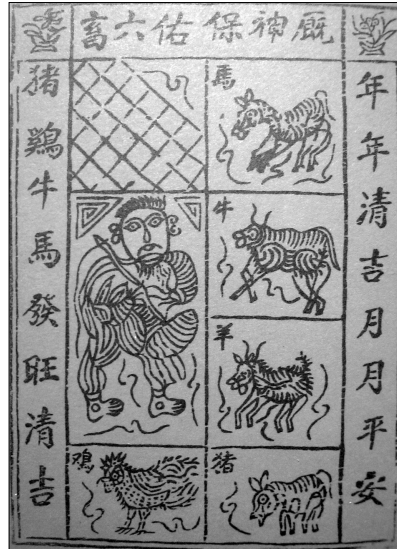 厩神保佑六畜
年年清吉月月平安
猪鷄牛馬發旺清吉
馬
牛
羊
猪
鸡